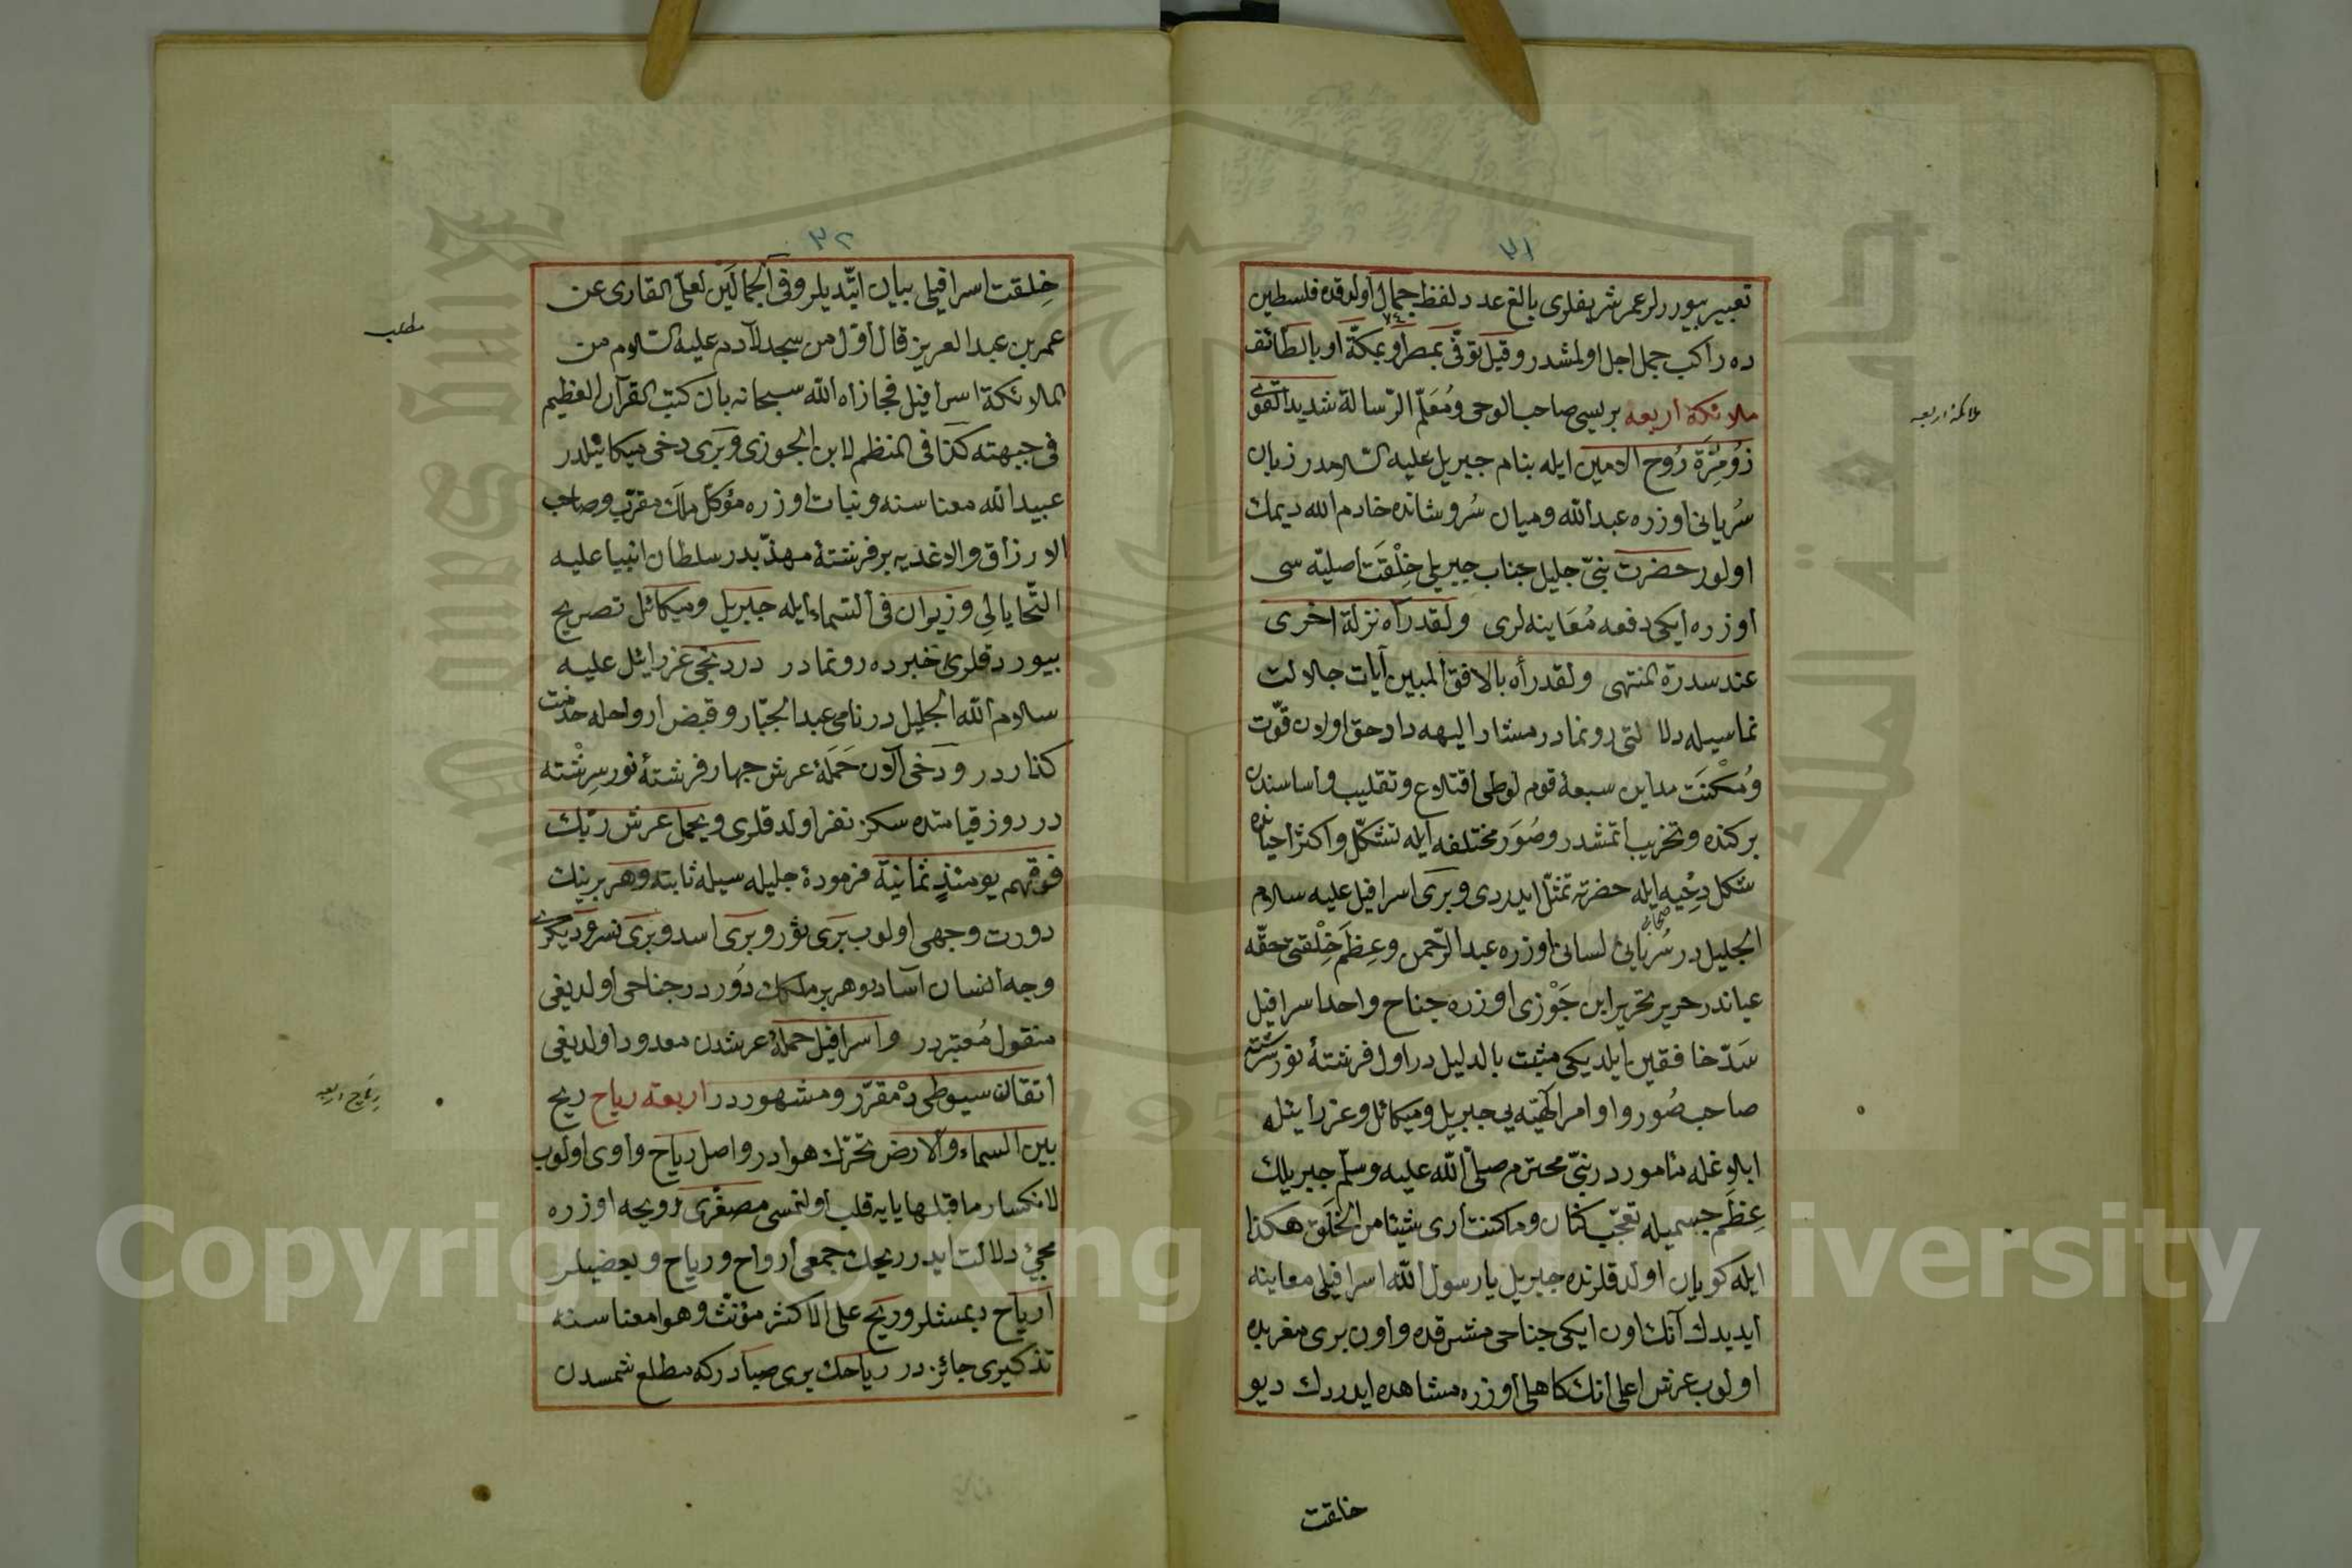 ٣١
تعبير بيوررلر عمر شريفلرى بالغ عدد لفظ جمال اولدقده فلسطين
٧٤
ده راكب جمل اجل اولمشدر وقيل توفى بمصر او بمكة او بالطائف
ملائكۀ اربعه بريسى صاحب الوحى ومعلم الرسالة شديد القوى
ملائكۀ اربعه
ذو مرة روح الامين ايله بنام جبريل عليه السلامدر زبان
سريانى اوزره عبدالله وميان سروشانده خادم الله ديمك
اولور حضرت نبى جليل جناب جبريلى خلقت اصليه سى
اوزره ايكى دفعه معاينه لرى ولقد رآه نزلة اخرى
عند سدرة المنتهى ولقد رأه بالافق المبين آيات جلالت
نماسيله دلالتى رونمادر مشار اليهه داد حق اولان قوت
ومكنت مداين سبعۀ قوم لوطى اقتلاع وتقليب واساسندن
بركنده وتخريب اتمشدر وصور مختلفه ايله تشكل واكثر احيانده
شكل دحيه ايله حضرته تمثل ايدردى وبرى اسرافيل عليه سلام
صحابى
الجليلدر سريانى لسانى اوزره عبدالرحمن وعظم خلقتى حقه
عياندر حرير تحرير ابن جوزى اوزره جناح واحد اسرافيل
سد خافقين ايلديكى مثبت بالدليلدر اول فرشتۀ نور سرشته
صاحب صور واوامر الهيه يى جبريل وميكائل وعزرائيله
ابلاغله مأموردر نبى محترم صلى الله عليه وسلم جبريلك
عظم جسميله تعجب كنان وما كنت ارى شيئا من الخلق هكذا
ايله كويان اولدقلرنده جبريل يا رسول الله اسرافيلى معاينه
ايديدك آنك اون ايكى جناحى مشرقده واون برى مغربده
اولوب عرش اعلى انك كاهلى اوزره مشاهده ايدردك ديو
خلقت
٣٢
خلقت اسرافيلى بيان ايتديلر وفى الجمالين لعلى القارى عن
عمر بن عبد العزيز قال اول من سجد لآدم عليه السلام من
مطلب
الملائكة اسرافيل فجازاه الله سبحانه بان كتب القرآن العظيم
فى جبهته كذا فى المنظم لابن الجوزى وبرى دخى ميكائيلدر
عبيد الله معناسنه ونبات اوزره مؤكل ملك مقرب وصاحب
الارزاق والاغذيه بر فرشتۀ مهذبدر سلطان انبيا عليه
التحايا لى وزيران فى السماء ايله جبريل وميكائل تصريح
بيوردقلرى خبرده رونمادر دردنجى عزرائل عليه
سلام الله الجليلدر نامى عبد الجبار وقبض ارواحله خدمت
كذاردر ودخى الآن حملۀ عرش چهار فرشتۀ نور سرشته
در روز قيامتده سكز نفر اولدقلرى ويحمل عرش ربك
فوقهم يومئذ ثمانية فرمودۀ جليله سيله ثابته وهر برينك
دورت وجهى اولوب برى ثور وبرى اسد وبرى نسر وديكرى
وجه انسان آسادر وهر بر ملكك دورد جناحى اولديغى
منقول معتبردر واسرافيل حملۀ عرشدن معدود اولديغى
اتقان سيوطى ده مقرر ومشهوردر اربعه رياح ريح
رياح اربعه
بين السماء والارض تحرك هوادر واصل رياح واوى اولوب
لانكسار ما قبلها يايه قلب اولنمسى مصغرى رويحه اوزره
مجئ دلالت ايدر ريحك جمعى ارواح ورياح وبعضيلر
ارياح ديمشلر وريح على الاكثر مؤنث وهوا معناسنه
تذكيرى جائزدر رياحك برى صبادركه مطلع شمسدن
Copyright © King Saud University